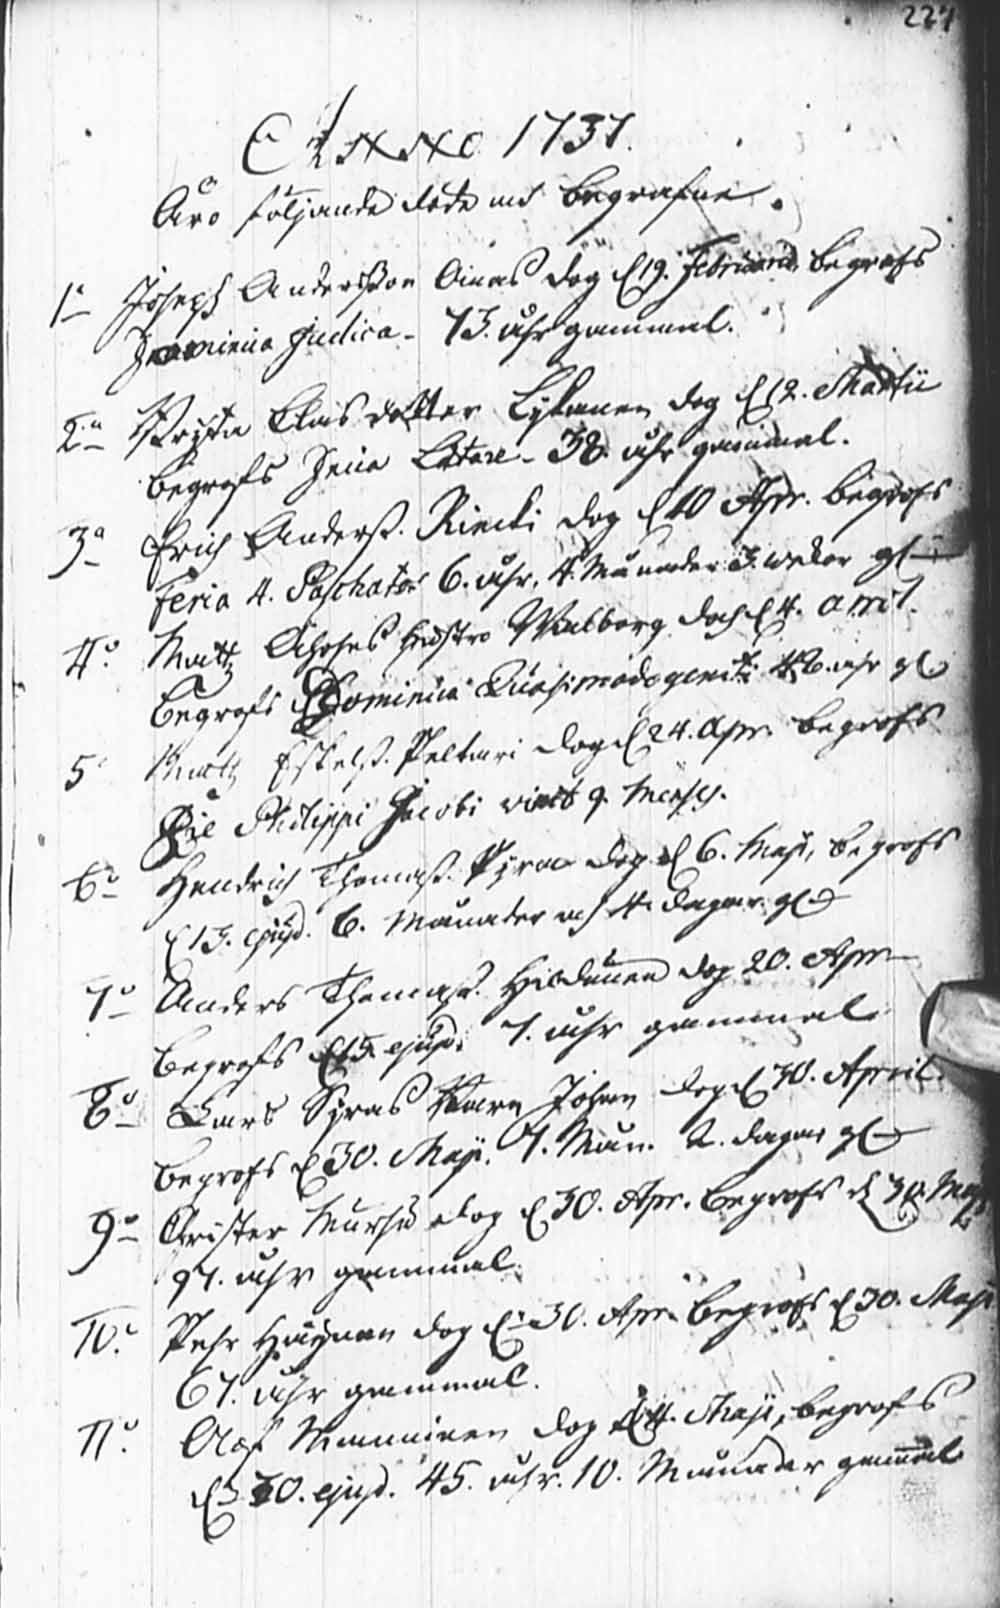 227
Anno 1737.
Äro följande döde och begrafne.
1o Joseph Andersson Oinas dog d 19. Februarii begrofs
Dominica Judica - 73. åhr gammal.
2o Krystin Clas dotter Lykanen dog d 12. Martii
begrofs Dnica Lætare - 38. åhr gammal.
3o Erich Anderss. Riecki dog d 10 Apr. begrofs
Feria 4. Paschatos 6. åhr, 4. Månader 3. wekor gl
4o Matz hustro Walborg dog d 4. April.
begrofs Dominica Quasimodogeniti 42. åhr gl
5o Matz Eskelss. Peltari dog d 24. Apr. begrofs
Die Philippi Jacobi vixit 9. Menses.
6o Hendrich Thomass. dog d 6. Maji, begrofs
d 13. ejusd. 6. Månader och 4. dagar gl
7o Anders Thomass. dog 20. Apr.
begrofs d 15. ejusd. 7. åhr gammal
8o Lars barn Johan dog d 30. April.
begrofs d 30. Maji. 7. Mån. 2. dagar gl
9o Christer Mursu dog d 30. Apr. begrofs d 30. Maji
97. åhr gammal
10o Pehr Häynen dog d 30. Apr. begrofs d 30. Maji
67. åhr gammal.
11o Olof Manninen dog d 4. Maji, begrofs
d 30. ejusd. 45. åhr. 10. Månader gammal